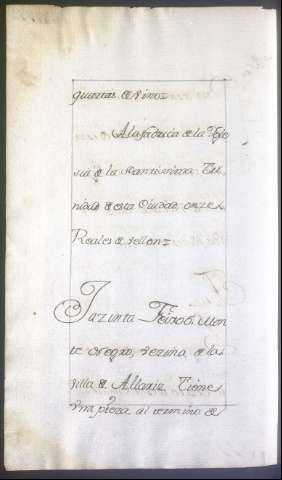 quartas de vino=
A la fabrica de la Ygle
sia de la Santissima Tri
nidad de esta Ciudad, onze
Reales de vellon=
Jazinta Feixoó Mon
te Negro, vezina de la
villa de Allariz, Tiene
Una pieza al termino de